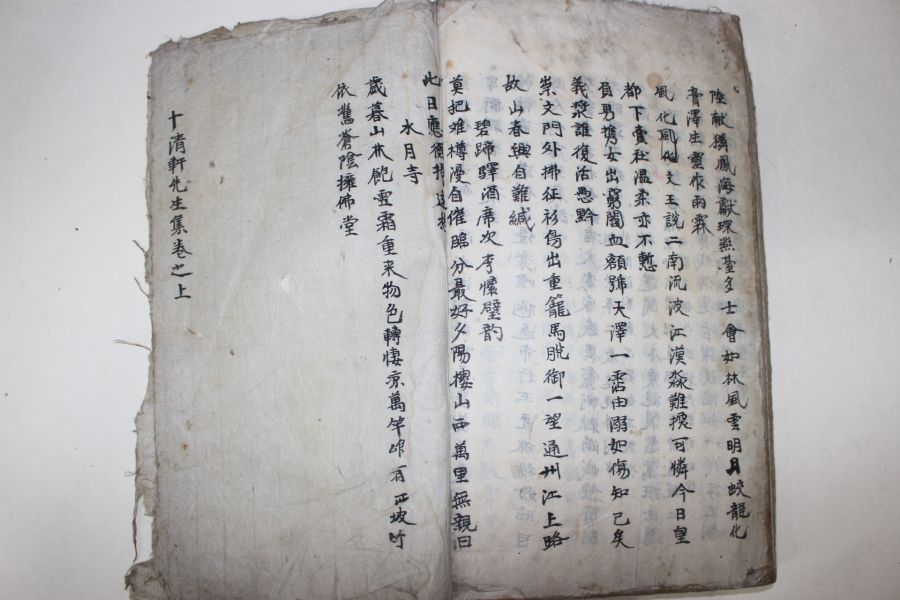 陸獻獜鳳海獻琛無臺多士會如林風雲明月蛟龍化
膏澤生靈作雨霖
風化風化文王說二南流波江漢淼難探可憐今日皇
都下賣社溫柔亦不慙
負男携女出窮閻血額號天澤一霑由溺如傷知已矣
義漿誰復活愚黔
崇文門外拂征衫傷出重籠馬脫御一望通州江上路
故山春興自難緘
碧蹄驛酒席次李懷壁韵
莫把难樽漫自催臨分最好夕陽樓山西萬里無親旧
此日應須
水月寺
歲暮山林飽雪霜重来物色轉悽凉萬竿唯有正坡竹
依舊蒼陰擁佛堂
十清軒先生集卷之上